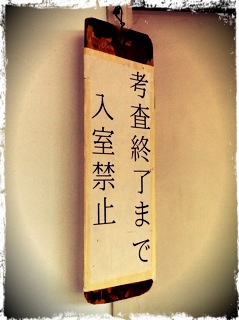 考査終了まで
入室禁止